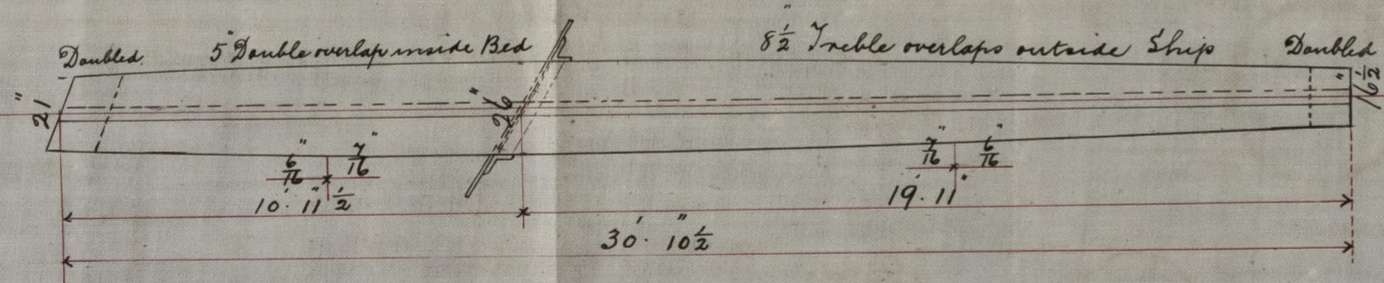 Doubled. 5" Double overlap inside Bed 8 1/2" Treble overlaps outside Ship Doubled
21" 26" 16 1/2"
6/16" 7/16" 7/16" 6/16"
10'. 11" 1/2 19'. 11"
30'. 10" 1/2